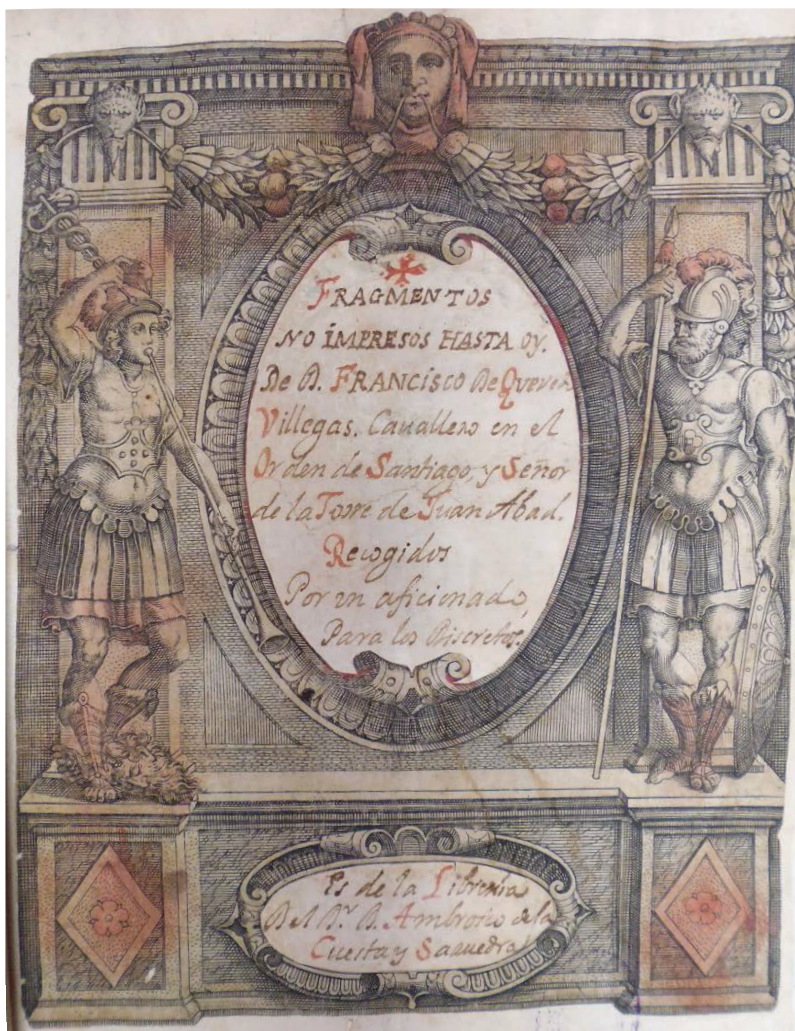 FRAGMENTOS
NO IMPRESOS HASTA OY.
De D. FRANCISCO De Queve
Villegas. Cauallero en el
Orden de Santiago, y Señor
de la Torre de Juan Abad.
Recogidos
Por un aficionado,
Para los Discretos.
Es de la Libreria
Del Dr. D. Ambrosio de la
Cuesta y Saauedra